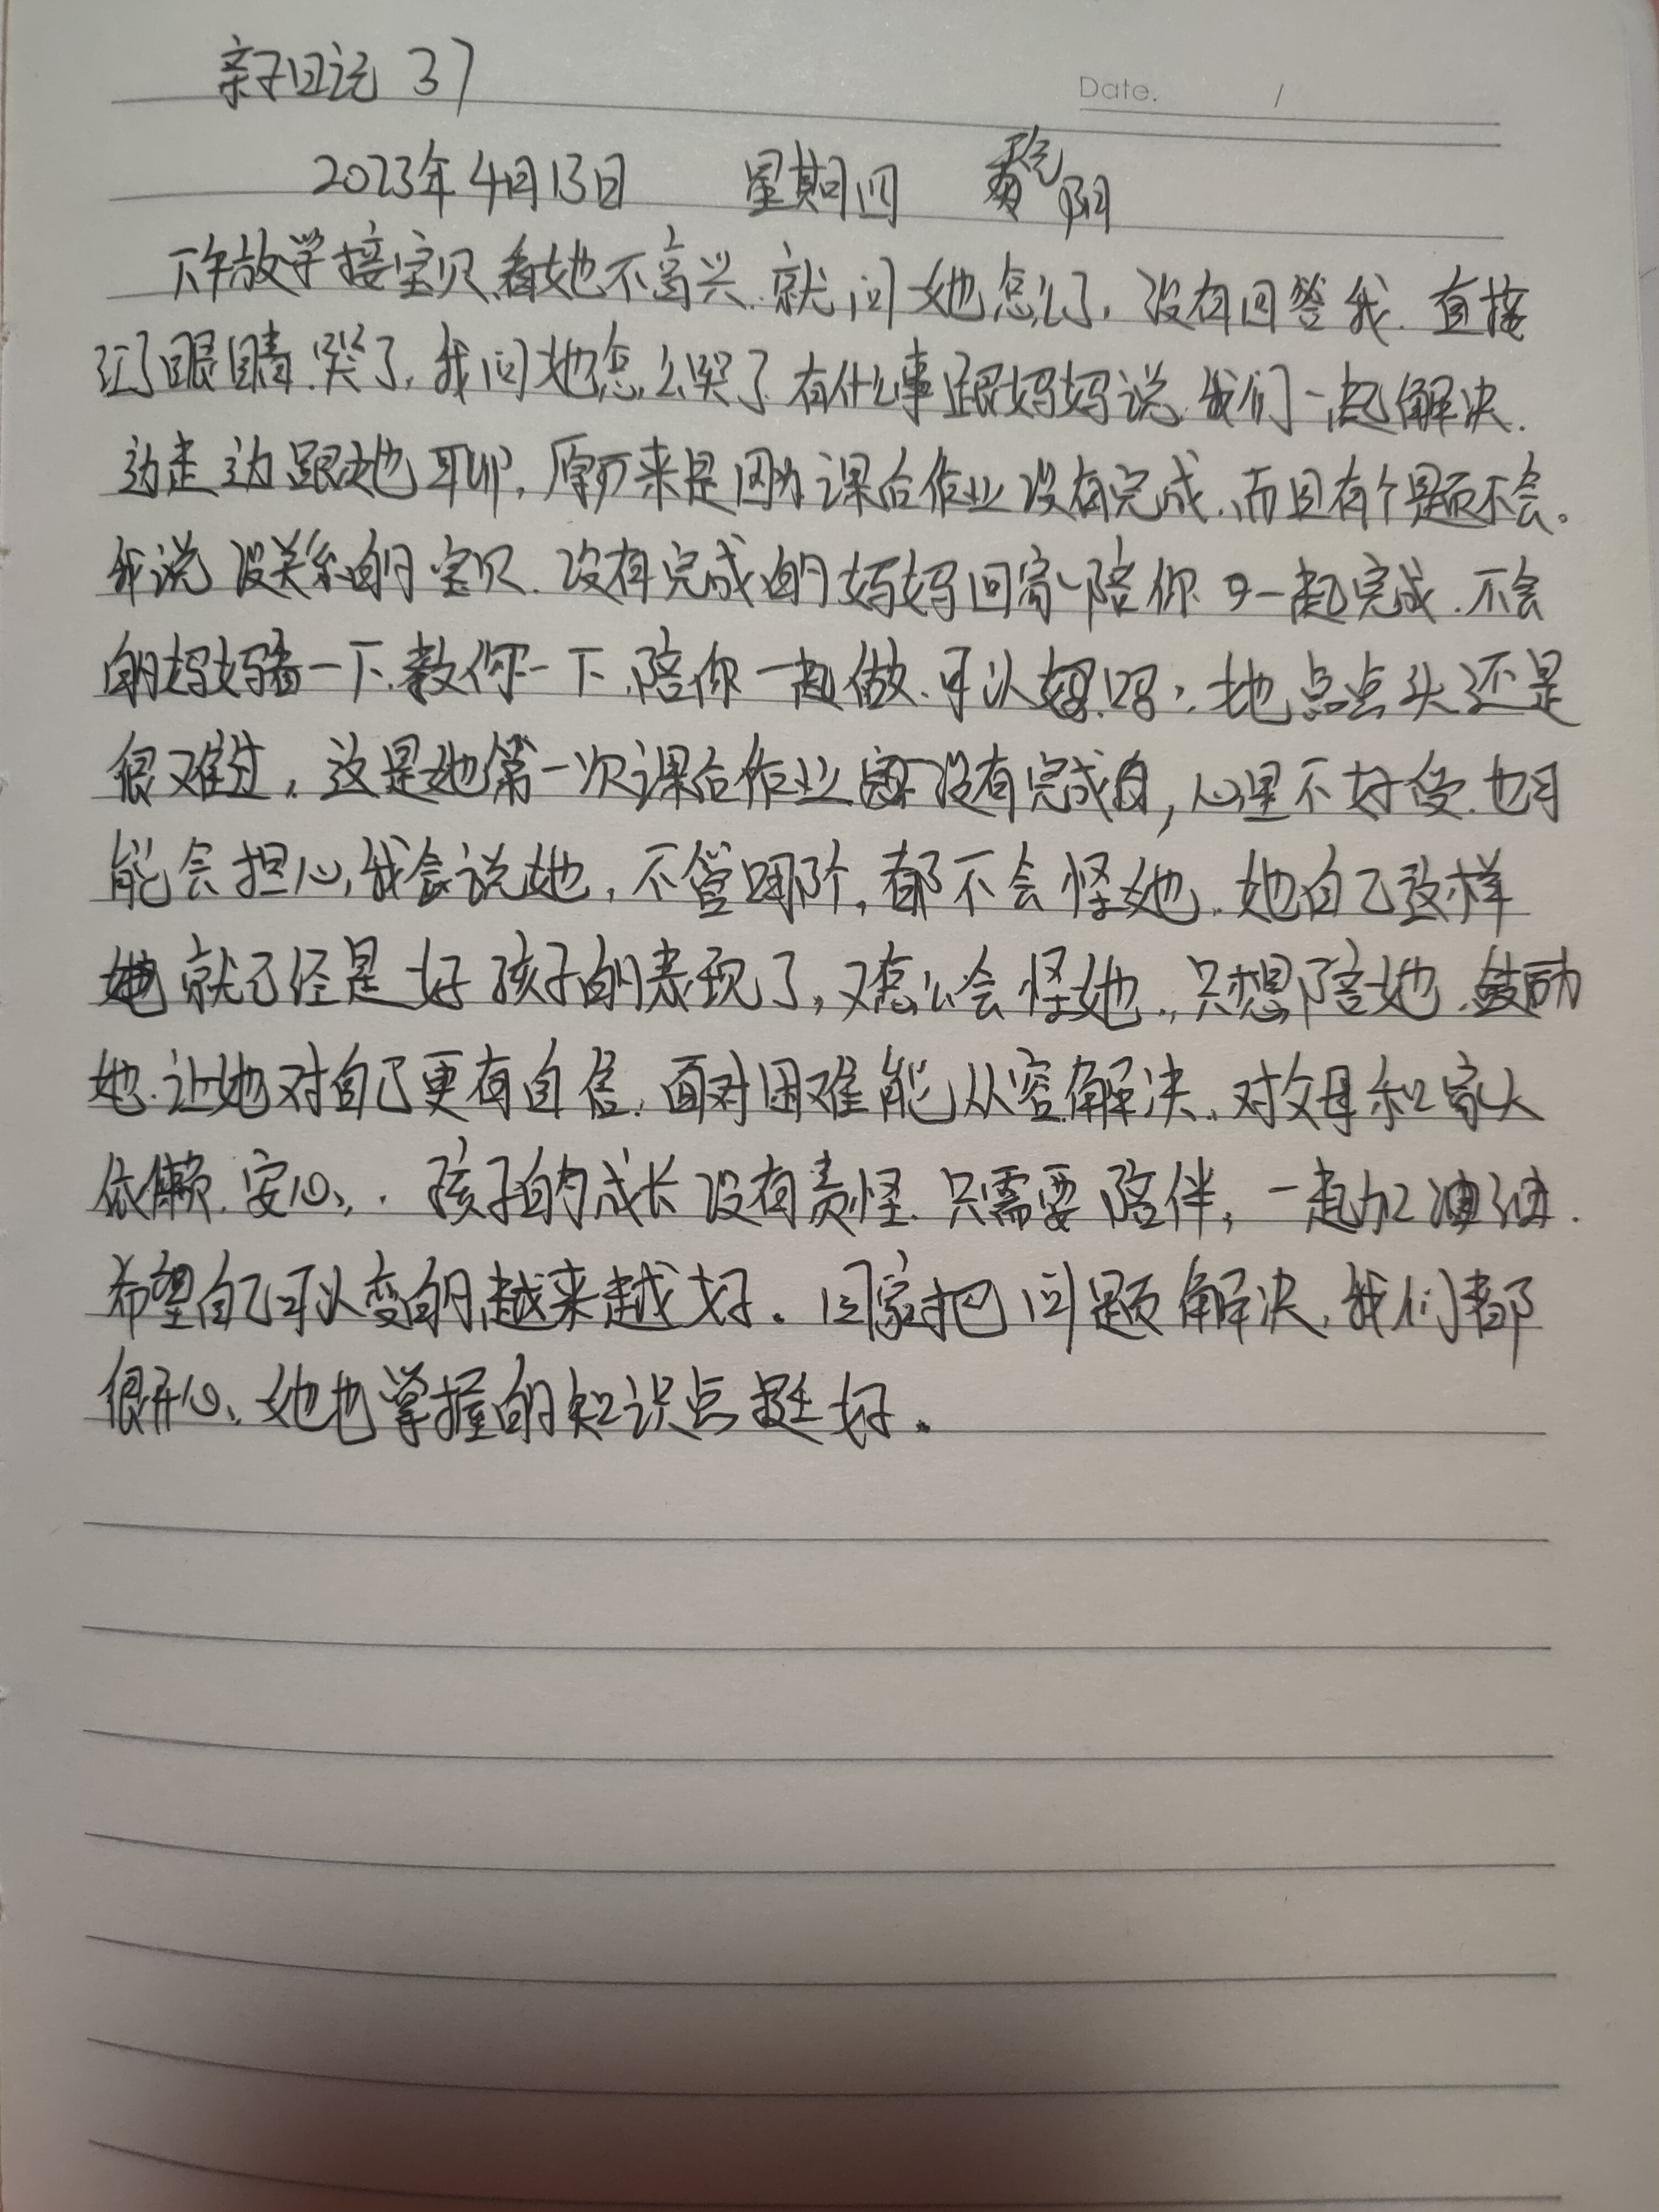 亲子日记 37
Date. /
2023年4月13日 星期四 阴
下午放学接宝贝,看她不高兴.就问她怎么了,没有回答我.直接
红了眼睛.哭了,我问她怎么哭了有什么事跟妈妈说.我们一起解决.
边走边跟她聊,原来是因为课后作业没有完成,而且有个题不会。
我说没关系的宝贝.没有完成的妈妈回家陪你一起完成.不会
的妈妈看一下.教你一下.陪你一起做.可以吗,她点点头还是
很难过,这是她第一次课后作业没有完成的,心里不好受.也可
能会担心,我会说她,不管哪个,都不会怪她.她自己这样
就已经是好孩子的表现了,又怎么会怪她.,只想陪她.鼓励
她.让她对自己更有自信.面对困难能从容解决.对父母和家人
依赖.安心,.孩子的成长没有责怪.只需要陪伴,一起加油.
希望自己可以变的越来越好。回家把问题解决,我们都
很开心、她也掌握的知识点挺好。